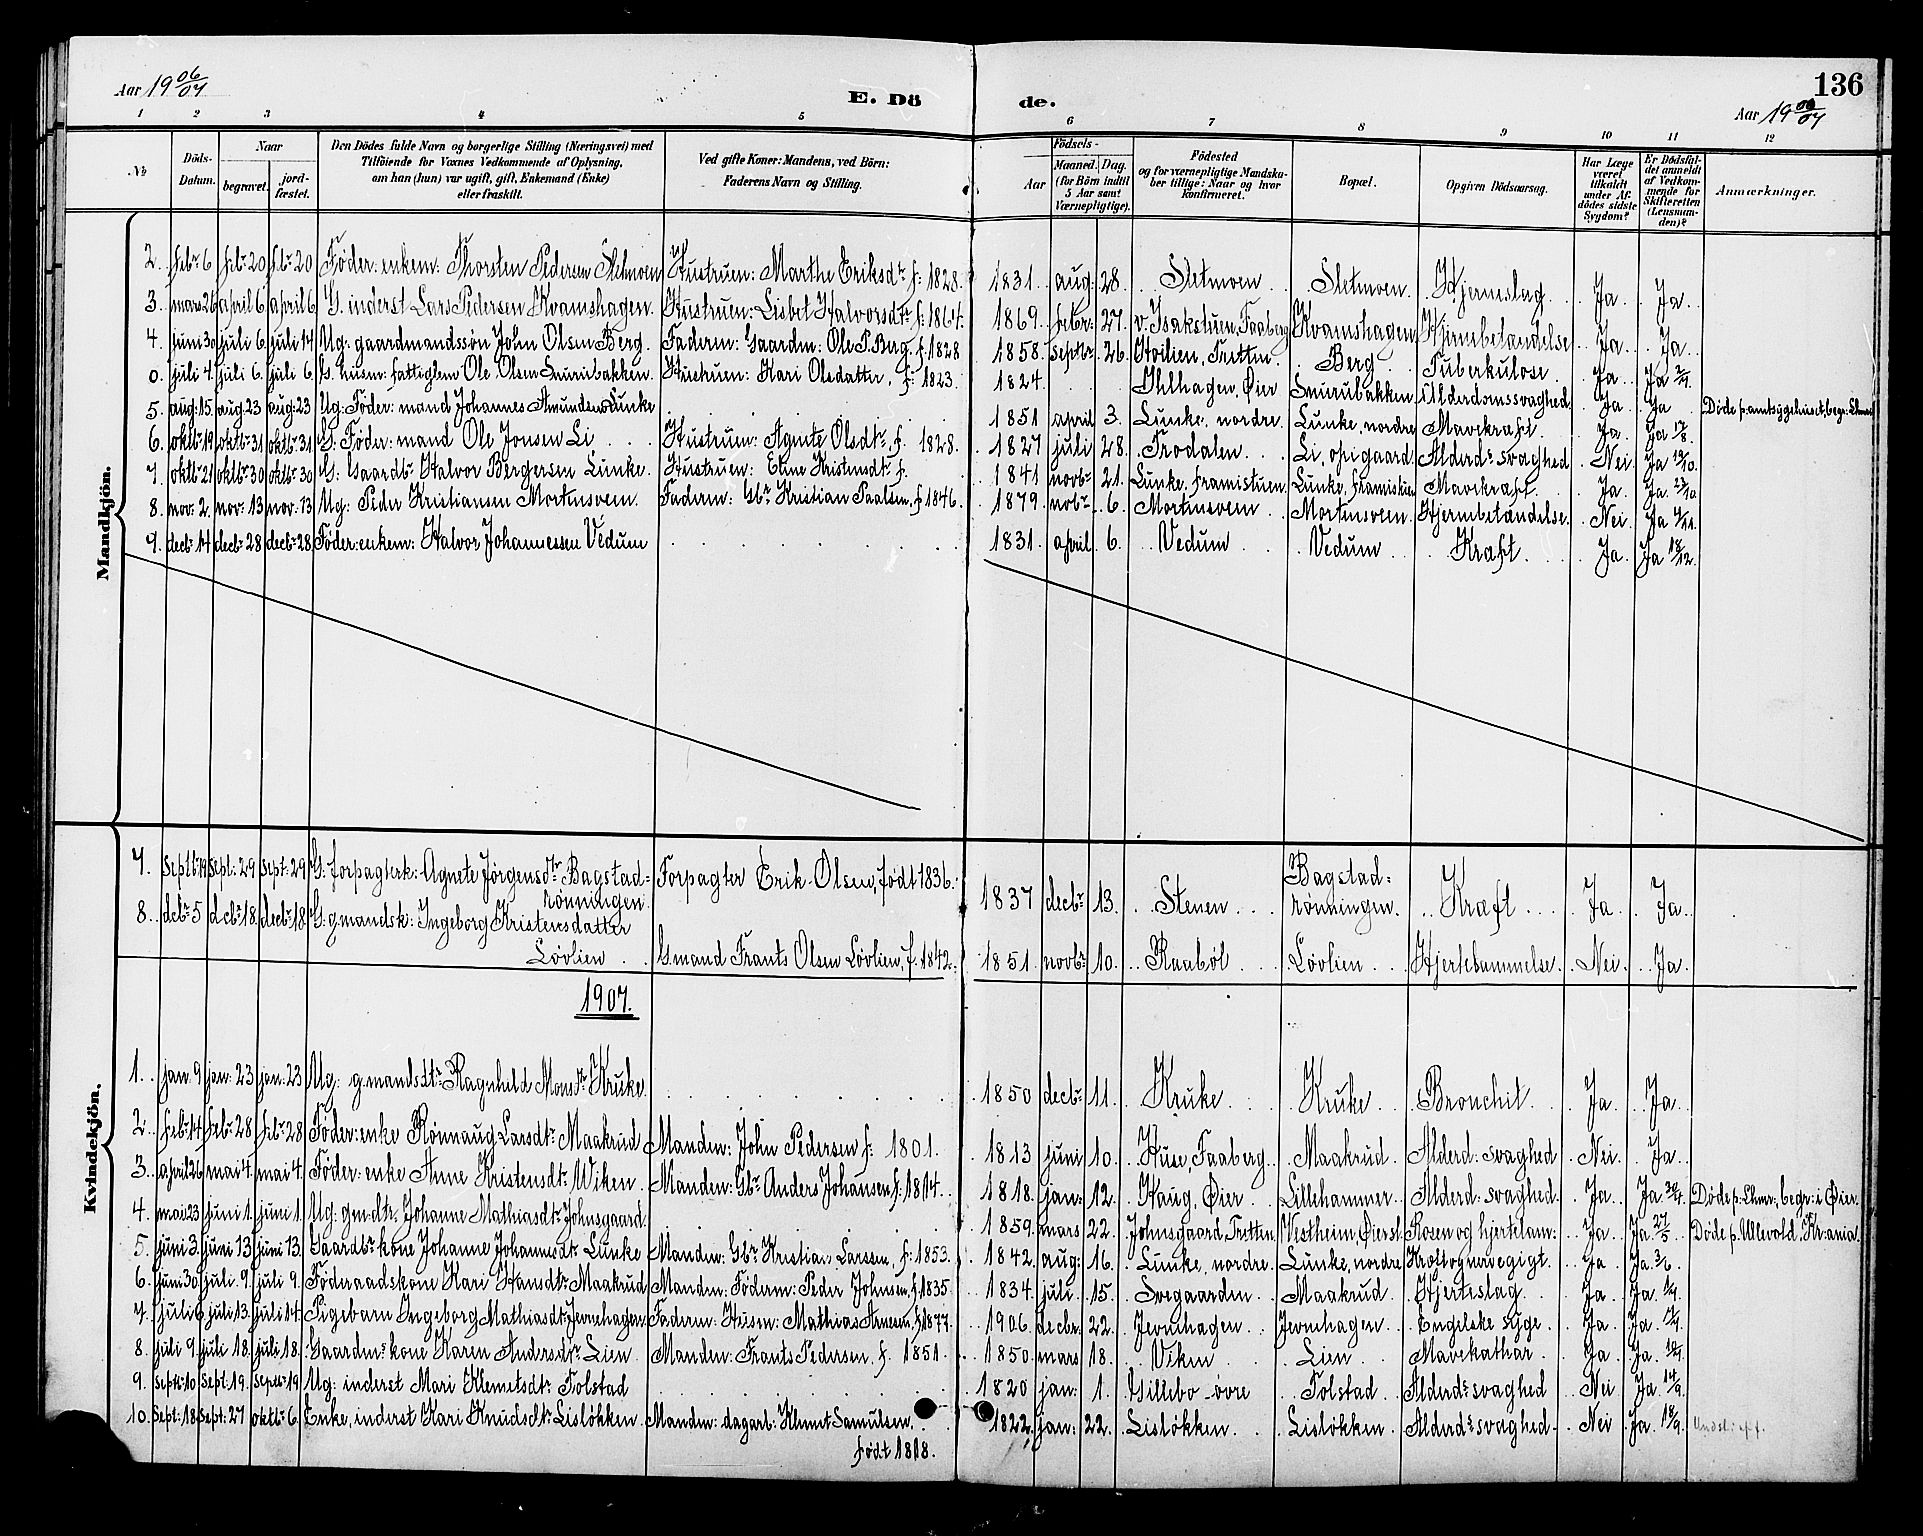 Aar 19 06/07
E. Dö de.
136
Aar 19 06/07
1 2 3 4 5 6 7 8 9 10 11 12
№
Döds-Datum.
Naar
begravet.
jord-fæstet.
Den Dödes fulde Navn og borgerlige Stilling (Næringsvei) med
Tilföiende for Voxnes Vedkommende af Oplysning,
om han (hun) var ugift, gift, Enkemand (Enke)
eller fraskilt.
Ved gifte Koner: Mandens, ved Börn:
Faderens Navn og Stilling.
Födsels-
Aar
Maaned. Dag.
(for Börn indtil
5 Aar samt
Værnepligtige).
Födested
og for værnepligtige Mandska-
ber tillige: Naar og hvor
konfirmeret.
Bopæl.
Opgiven Dödsaarsag.
Har Læge
været
tilkaldt
under Af-
dödes sidste
Sygdom?
Er Dödsfal-
det anmeldt
af Vedkom-
mende for
Skifteretten
(Lensman-
den)?
Anmærkninger.
Mandkjön.
2. febr. 6 febr. 20 febr. 20 Føder: enkem: Thorsten Pedersen Sletmoen Hustruen: Marthe Eriksdtr f: 1828. 1831. aug: 28. Sletmoen. Sletmoen. Hjerneslag. Ja. Ja.
3. mars 26 april 6. april 6. G. inderst Lars Pedersen Kvamshagen. Hustruen: Lisbet Halvorsdtr f: 1864. 1869. febr: 27. v. Isakstuen, Faaberg Kvamshagen Hjernebetændelse Ja. Ja.
4. juni 30 juli 6. juli 14 Ug: gaardmandssøn John Olsen Berg. Faderen: Gaardm: Ole P. Berg. f. 1828 1858. septbr. 26. Hoilien, Tretten Berg. Tuberkulose. Ja. Ja 2/7.
0. juli 4. juli 6. juli 6. G. husm: fattiglem Ole Olsen Smurubakken. Hustruen: Kari Olsdatter, f: 1823. 1824. Ihlhagen, Øier Smurubakken. Alderdomssvaghed. Ja. Ja
5. aug: 15. aug: 23 aug: 23 Ug: Føder: mand Johannes Amundsen Lunke 1851 april 3. Lunke, nordre. Lunke, nordre Mavekræft. Ja. Ja 17/8. Døde p: amtsygehuset, begr:
6. oktbr 19 oktbr 31 oktbr 31 G. Føder: mand Ole Jonsen Li Hustruen: Agnete Olsdtr. f. 1828. 1827 juli 28. Frodalen. Li, opigaard. Alderds svaghed Nei Ja
7. oktbr 21 oktbr 30 oktbr 30 G: Gaardbr Halvor Bergersen Lunke. Hustruen: Eline Kristensdtr f. 1841 novbr 21. Lunke, framistuen. Lunke, framistuen Mavekræft. Ja. Ja 23/10.
8. nov: 2. nov: 13 nov: 13 Ug: Peder Kristiansen Mortensveen. Faderen: Gbr Kristian Paalsen, f 1846. 1879 novbr 6. Mortensveen Mortensveen. Hjernebetændelse. Nei. Ja 4/11.
9. decbr 14 decbr 28 decbr 28. Føder: enkem: Halvor Johannessen Vedum 1831. april 6. Vedum. Vedum. Kræft. Ja. Ja 18/12.
Kvindekjön.
7. Septbr 19 Sept: 29 Sept: 29 G: forpagterk: Agnete Jørgensdtr Bagstad-
rønningen. Forpagter Erik Olsen, født 1836. 1837 decbr 13. Stenen. Bagstad-
rønningen. Kræft. Ja. Ja.
8. decbr 5 decbr 18. decbr 18 G: gmandsk: Ingeborg Kristensdatter
Løvlien Gmand Frants Olsen Løvlien, f. 1842. 1851. novbr. 10. Raabøl. Løvlien. Hjertelammelse. Nei. Ja.
1907.
1. jan 9 jan: 23 jan: 23 Ug: gmandsdtr Ragnhild Monsdtr Kruke. 1850 decbr 11. Kruke. Kruke. Bronchit. Ja. Ja.
2. febr. 14 febr. 28 febr. 28 Føder: enke Rønnaug Larsdtr Maakrud Manden: John Pedersen f: 1801. 1813 juni 10. Huse, Faaberg. Maakrud. Alderd: svaghed Nei. Ja.
3. april 26 mai 4. mai 4. Føder: enke Anne Kristensdtr Wiken. Manden: Gbr Anders Johansen, f: 1814. 1818. jan: 12. Haug, Øier. Lillehammer. Alderd: svaghed. Ja. Ja 30/4. Døde p: Lhmr., begr: i Øier.
4. mai 23 juni 1. juni 1. Ug: gm: dtr. Johanne Mathiasdtr Johnsgaard. 1859. mars 22. Johnsgaard, Tretten Westheim, Øier Rosen og hjertelam: Ja. Ja 27/5. Døde p. Ullevold, Kr:ania.
5. juni 3. juni 13. juni 13. Gaardbr kone Johanne Johannesdtr Lunke Manden: Gbr. Kristian Larssen, f: 1853. 1842. aug: 16. Lunke, nordre. Lunke, nordre Kræft og nervegigt. Ja. Ja 3/6.
6. juni 30 juli 9. juli 9. Føderaadskone Kari Hansdtr Maakrud Manden: Føderm: Peder Johnsen, f. 1835. 1834. juli. 15. Svegaarden. Maakrud. Hjerteslag. Ja. Ja 1/7.
7. juli 6 juli 13. juli 14. Pigebarn Ingeborg Mathiasdtr Jevnehagen. Faderen: Husm: Mathias Arnesen, f. 1877. 1906. decbr. 22. Jevnehagen. Jevnehagen. Engelske syge. Ja. Ja.
8. juli 9 juli 18. juli 18. Gaardm: kone Karen Andersdtr Lien. Manden: Frants Pedersen f. 1851. 1850. mars 18. Viken. Lien. Mavekathar. Ja. Ja. 10/7.
9. septbr 10 sept. 19. septbr 19 Ug: inderst Mari Klemetsdtr Tolstad 1820 jan: 1. Isillebo øvre Tolstad. Alderds svaghed Nei Ja 14/9.
10. Sept: 18. Sept: 27 oktbr 6. Enke, inderst Kari Knudsdtr. Lisløkken. Manden: dagarb: Klemet Samulsen,
født 1818. 1822 jan: 22. Lisløkken. Lisløkken. Alderds svaghed. Nei Ja 18/9.